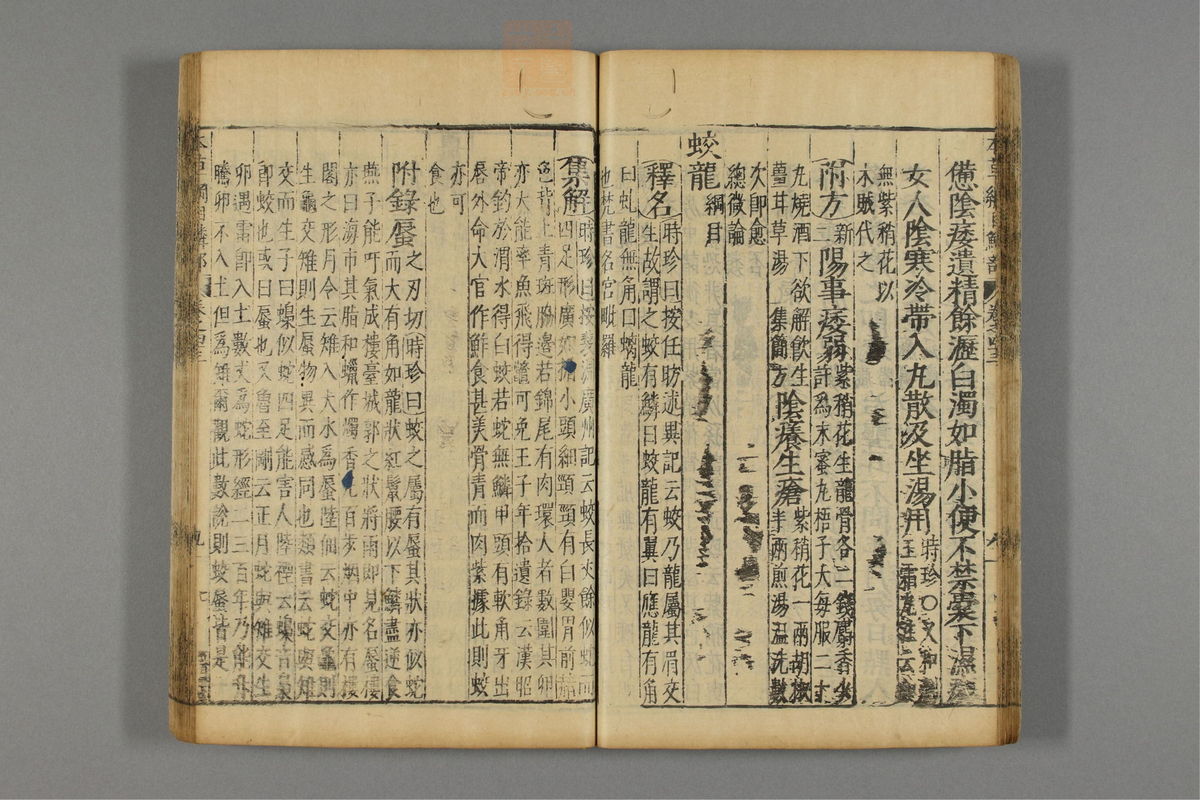 憊陰痿遺精餘瀝白濁如脂小便不禁囊下濕
女人陰寒冷帶入丸散及坐湯用
時珍○又和
玉霜丸註云
無紫稍花以
木賊代之
附方新二陽事痿弱紫稍花生龍骨各二錢麝香少許為末蜜丸梧子大每服二十
丸燒酒下欲解飲生
薑甘草湯 集簡方陰癢生瘡紫稍花一兩胡椒半兩煎湯溫洗數
次即愈
總微論
蛟龍綱目
釋名時珍曰按任昉述異記云蛟乃龍屬其眉交
生故謂之蛟有鱗曰蛟龍有翼曰應龍有角
曰虬龍無角曰螭龍
也梵書名宮毗羅
集解時珍曰按裴淵廣州記云蛟長丈餘似蛇而
四足形廣如楯小頭細頸頸有白嬰胃前赭
色背上青斑脇邊若錦尾有肉環大者數圍其卵
亦大能率魚飛得鼈可免王子年拾遺錄云漢昭
帝釣於渭水得白蛟若蛇無鱗甲頭有軟角牙出
唇外命大官作鮓食甚美骨青而肉紫據此則蛟
亦可
食也
附錄蜃之刃切時珍曰蛟之屬有蜃其狀亦似蛇
而大有角如龍狀紅鬣腰以下鱗盡逆食
燕子能吁氣成樓臺城郭之狀將雨即見名蜃樓
亦曰海市其脂和蠟作燭香凡百步烟中亦有樓
閣之形月令云雉入大水為蜃陸佃云蛇交龜則
生龜交雉則生蜃物異而感同也類書云蛇與雉
交而生子曰蟂似蛇四足能害人陸禋云蟂音梟
卽蛟也或曰蜃也又魯至剛云正月蛇與雉交生
卵遇雷卽入土數丈為蛇形經二三百年乃能升
騰卵不入土但為雉爾觀此數說則蛟蜃皆是一